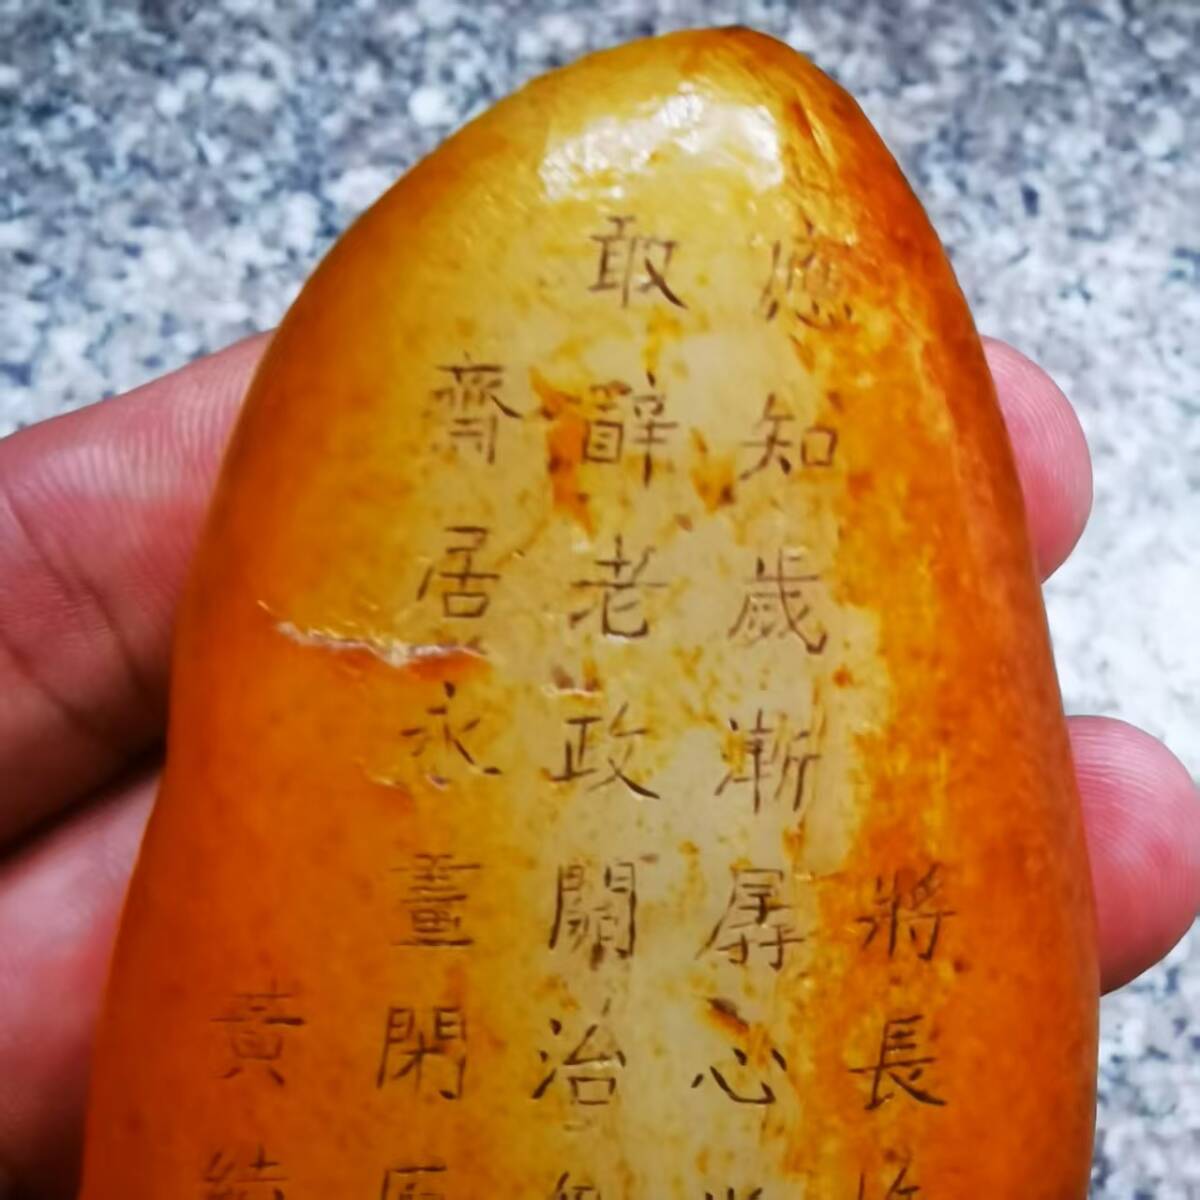 將長
應知歲漸孱心
敢辭老政關治
齋居永晝閑
黃